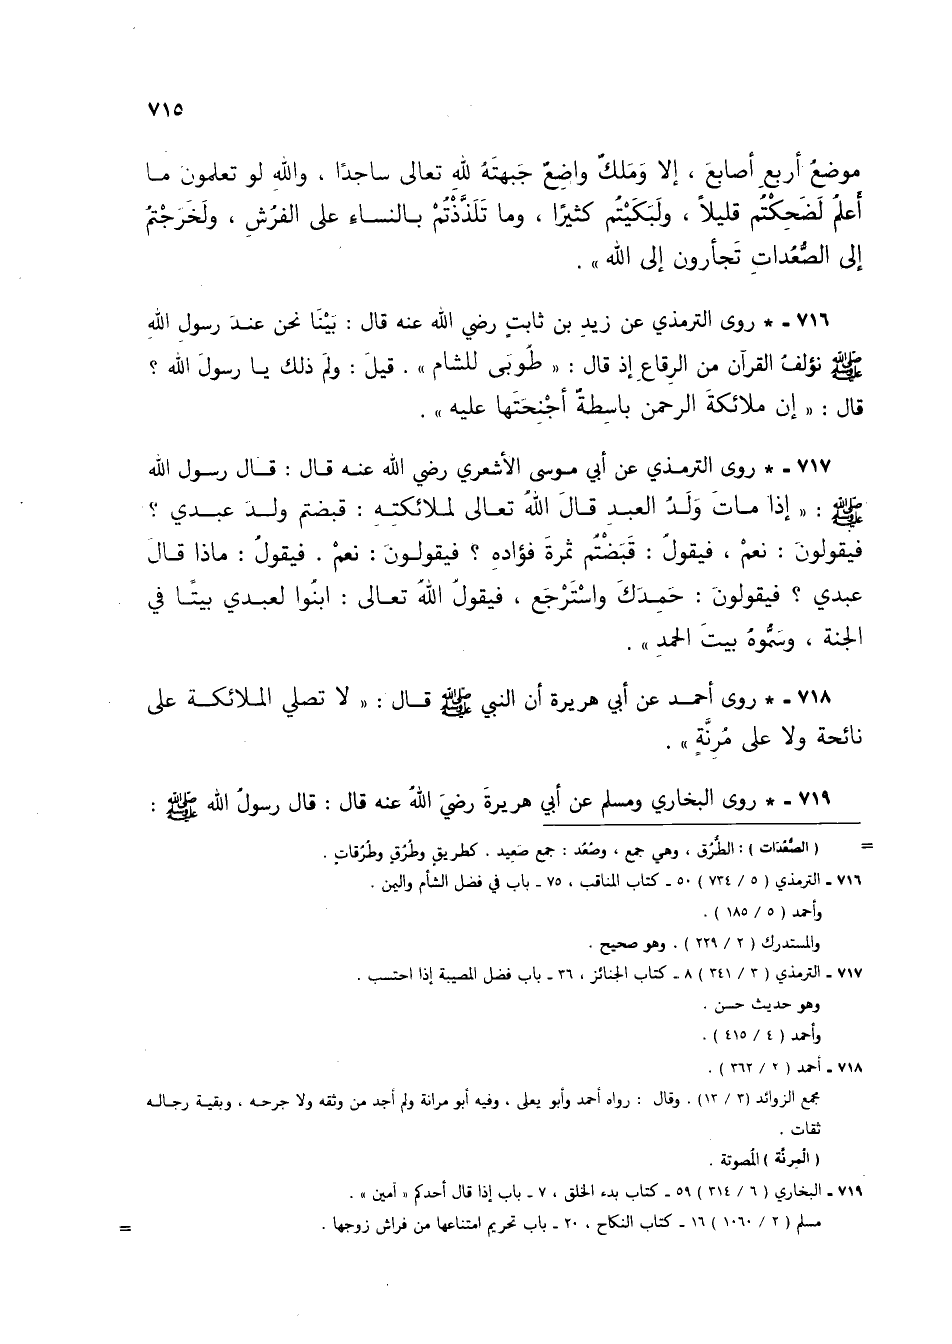 ٧١٥
موضعُ أربعِ أصابعَ ، إلا وَمَلكٌ واضِعٌ جَبهتَهُ للهِ تعالى ساجدًا ، واللهِ لو تعلمون ما
أعلمُ لَضَحِكْتُم قليلاً ، ولَبَكَيْتُم كثيرًا ، وما تَلَذَّذْتُمْ بالنساء على الفرُشِ ، ولَخَرَجْتمُ
إلى الصُّعُداتِ تَجأرون إلى الله » .
٧١٦ - * روى الترمذي عن زيدِ بن ثابتٍ رضي الله عنه قال : بَيْنَا نحن عندَ رسول اللهِ
ﷺ نؤلفُ القرآن من الرقاعِ إذ قال : « طُوبَى للشام » . قيلَ : ولمَ ذلك يا رسولَ الله ؟
قال : « إن ملائكةَ الرحمن باسطةٌ أجْنِحَتَها عليه » .
٧١٧ - * روى الترمذي عن أبي موسى الأشعري رضي الله عنه قال : قال رسول الله
ﷺ : « إذا ماتَ وَلَدُ العبدِ قالَ اللهُ تعالى لملائكتِهِ : قبضتم ولدَ عبدي ؟
فيقولونَ : نعمْ ، فيقولُ : قَبَضْتُم ثمرةَ فؤاده ؟ فيقولونَ : نعمْ . فيقولُ : ماذا قالَ
عبدي ؟ فيقولونَ : حَمِدَكَ واسْتَرْجَع ، فيقولُ اللهُ تعالى : ابنُوا لعبدي بيتًا في
الجنة ، وسَمُّوهُ بيتَ الحمدِ » .
٧١٨ - * روى أحمد عن أبي هريرة أن النبي ﷺ قال : « لا تصلي الملائكة على
نائحة ولا على مُرِنَّةٍ » .
٧١٩ - * روى البخاري ومسلم عن أبي هريرةَ رضيَ اللهُ عنه قال : قال رسولُ الله ﷺ :
= ( الصُّعُدَات ) : الطُرُق ، وهي جمع ، وصُعُد : جمع صَعيد . كطريقٍ وطُرُقٍ وطُرُقاتٍ .
٧١٦ - الترمذي ( ٥ / ٧٣٤ ) ٥٠ - كتاب المناقب ، ٧٥ - باب في فضل الشأم واليمن .
وأحمد ( ٥ / ١٨٥ ) .
والمستدرك ( ٢ / ٢٢٩ ) . وهو صحيح .
٧١٧ - الترمذي ( ٣ / ٣٤١ ) ٨ - كتاب الجنائز ، ٣٦ - باب فضل المصيبة إذا احتسب .
وهو حديث حسن .
وأحمد ( ٤ / ٤١٥ ) .
٧١٨ - أحمد ( ٢ / ٣٦٢ ) .
مجمع الزوائد (٣ / ١٣) . وقال : رواه أحمد وأبو يعلى ، وفيه أبو مرانة ولم أجد من وثقه ولا جرحه ، وبقية رجاله
ثقات .
( الْمِرنَّة ) المُصوتة .
٧١٩ - البخاري ( ٦ / ٣١٤ ) ٥٩ - كتاب بدء الخلق ، ٧ - باب إذا قال أحدكم « آمين » .
مسلم ( ٢ / ١٠٦٠ ) ١٦ - كتاب النكاح ، ٢٠ - باب تحريم امتناعها من فراش زوجها . =